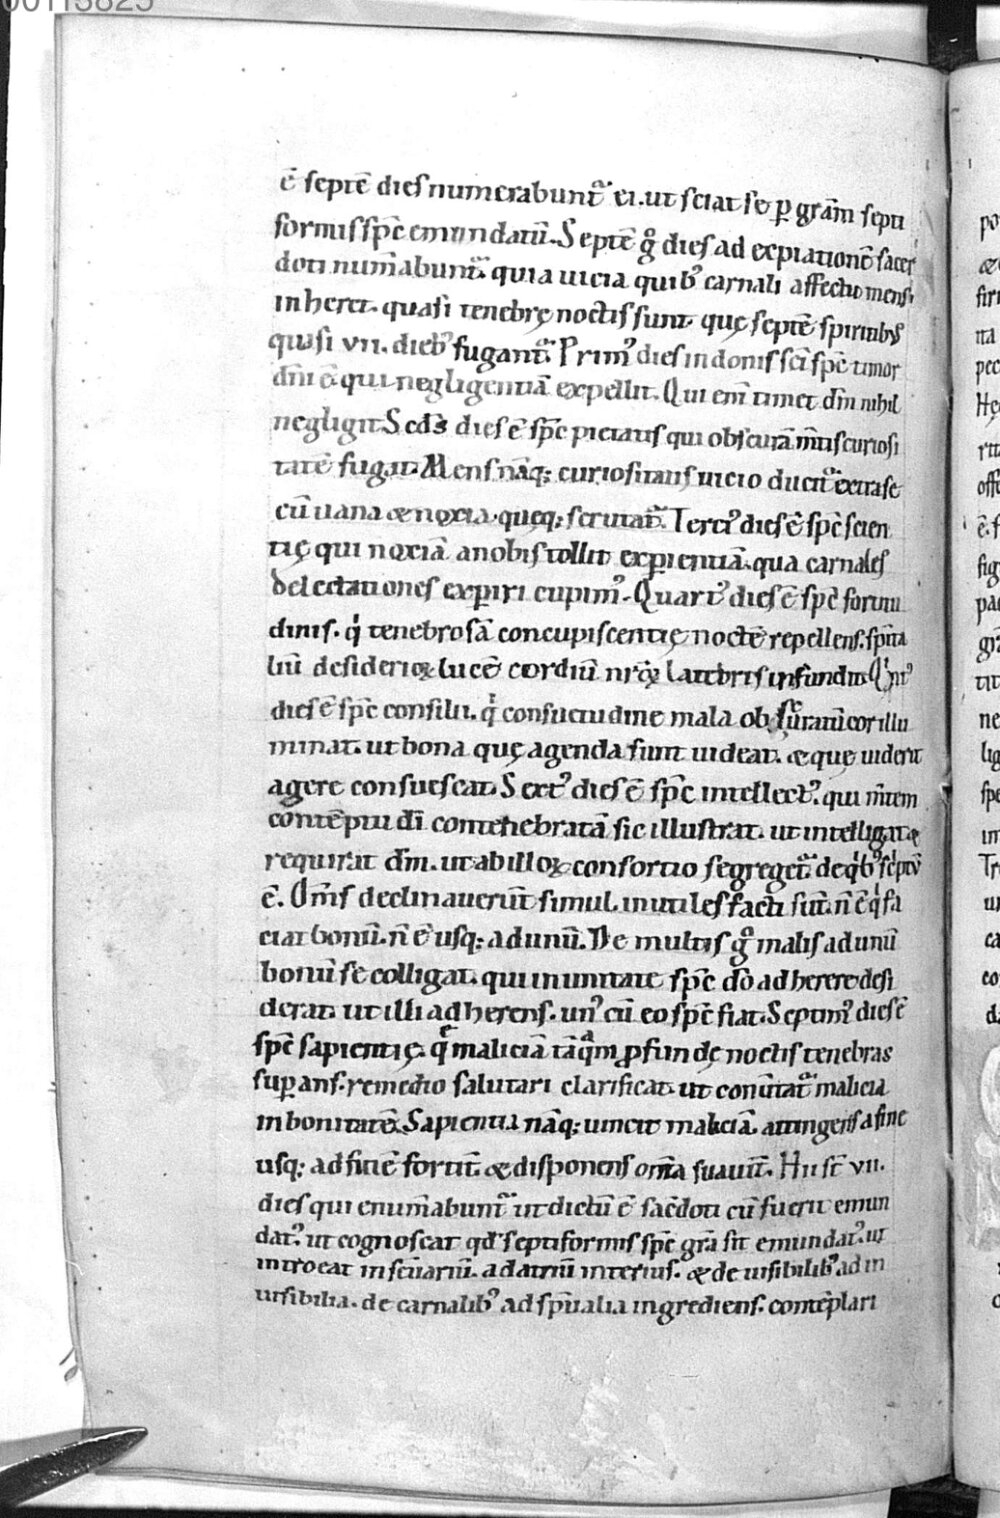 00113825
ē septē dies numerabuntᷣ ei. ut sciat se ꝑ grām septi
formis sp̄c emundatū. Septē gͦ dies ad expiationē sacer
doti num̄abuntᷣ. quia uicia quibꝰ carnali affectu mens
inheret. quasi tenebrę noctis sunt. quę septē spiritibꝰ
quasi vii. diebꝰ fugantᷣ. Primꝰ dies in donis sc̄i sp̄c timor
dn̄i ē qui negligentiā expellit. Qui eni͂ timet dn̄m nihil
negligit. Scd̄s dies ē sp̄c pietatis qui obscurā m̄tis curiosi
tatē fugat. Mens nāq; curiositatis uicio ducitᷣ extra se
cū uana & noxia. quęq; scrutatᷣ. Terciꝰ dies ē sp̄c scien
tię qui noxiā a nobis tollit exꝑientiā. qua carnales
delectationes exꝑiri cupimꝰ. Quartꝰ dies ē sp̄c fortitu
dinis. qͥ tenebrosā concupiscentię noctē repellens. sp̄ita
liū desiderioꝝ lucē cordiū nr̄oꝝ latebris infundit. Qͥntꝰ
dies ē sp̄c consilii. qͥ consuetudine mala obscuratū cor illu
minat. ut bona quę agenda sunt uideat. & quę uiderit
agere consuescat. Sextꝰ dies ē sp̄c intellectꝰ. qui m̄tem
contēptu dī contenebratā sic illustrat. ut intelligat &
requirat dm̄. ut ab illoꝝ consortio segregetᷣ. de qͥbꝰ sc̓ptū
ē. Om̄s declinauerūt simul. inutiles facti sūt. n̄ ē qͥ fa
ciat bonū. n̄ ē usq; ad unū. De multis gͦ malis ad unū
bonū se colligat. qui in unitate sp̄c dō adherere desi
derat. ut illi adherens. unꝰ cū eo sp̄c fiat. Septimꝰ dies ē
sp̄c sapientię. qͥ maliciā tāqͣm ꝓfundę noctis tenebras
suꝑans. remedio salutari clarificat. ut conūtatᷣ malicia
in bonitatē. Sapientia nāq; uincit maliciā. attingens a fine
usq; ad finē fortit̄. & disponens om̄ia suauit̄. Hii st̄ vii.
dies qui enum̄abuntᷣ ut dictū ē sac̄doti cū fuerit emun
datꝰ. ut cognoscat qd̄ septiformis sp̄c grā sit emundatꝰ. ut
introeat in sc̄uariū. ad atriū interius. & de uisibilibꝰ ad in
uisibilia. de carnalibꝰ ad sp̄ualia ingrediens. contēplari